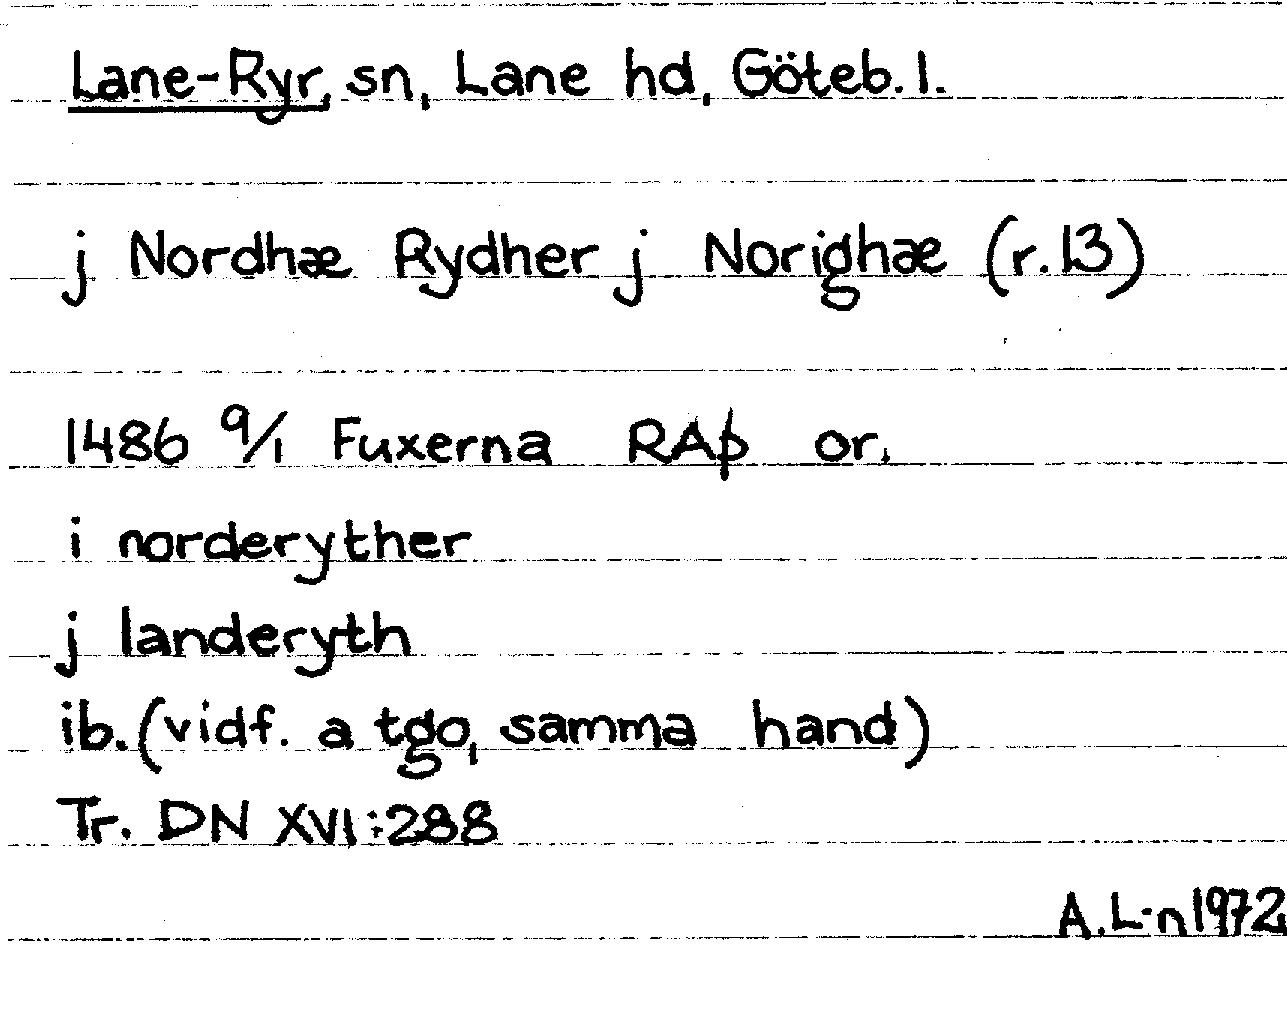 Lane-Ryr, sn, Lane hd, Göteb. l.
j Nordhæ Rydher j Norighæ (r. 13)
1486 9/1 Fuxerna RAþ or.
i norderyther
j landeryth
ib. (vidf. a tgo, samma hand)
Tr. DN XVI:288
A.L-n 1972